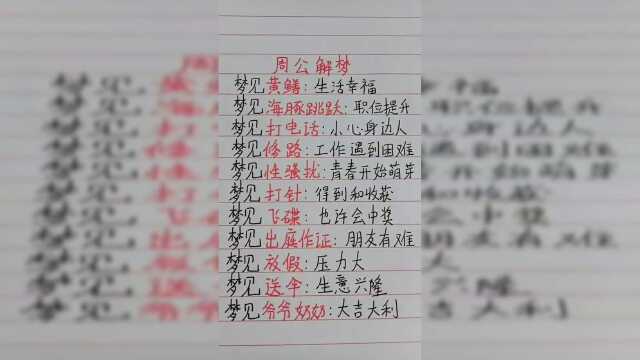 周公解梦
梦见黄鳝：生活幸福
梦见海豚跳跃：职位提升
梦见打电话：小心身边人
梦见修路：工作遇到困难
梦见性骚扰：青春开始萌芽
梦见打针：得到和收获
梦见飞碟：也许会中奖
梦见出庭作证：朋友有难
梦见放假：压力大
梦见送伞：生意兴隆
梦见爷爷奶奶：大吉大利